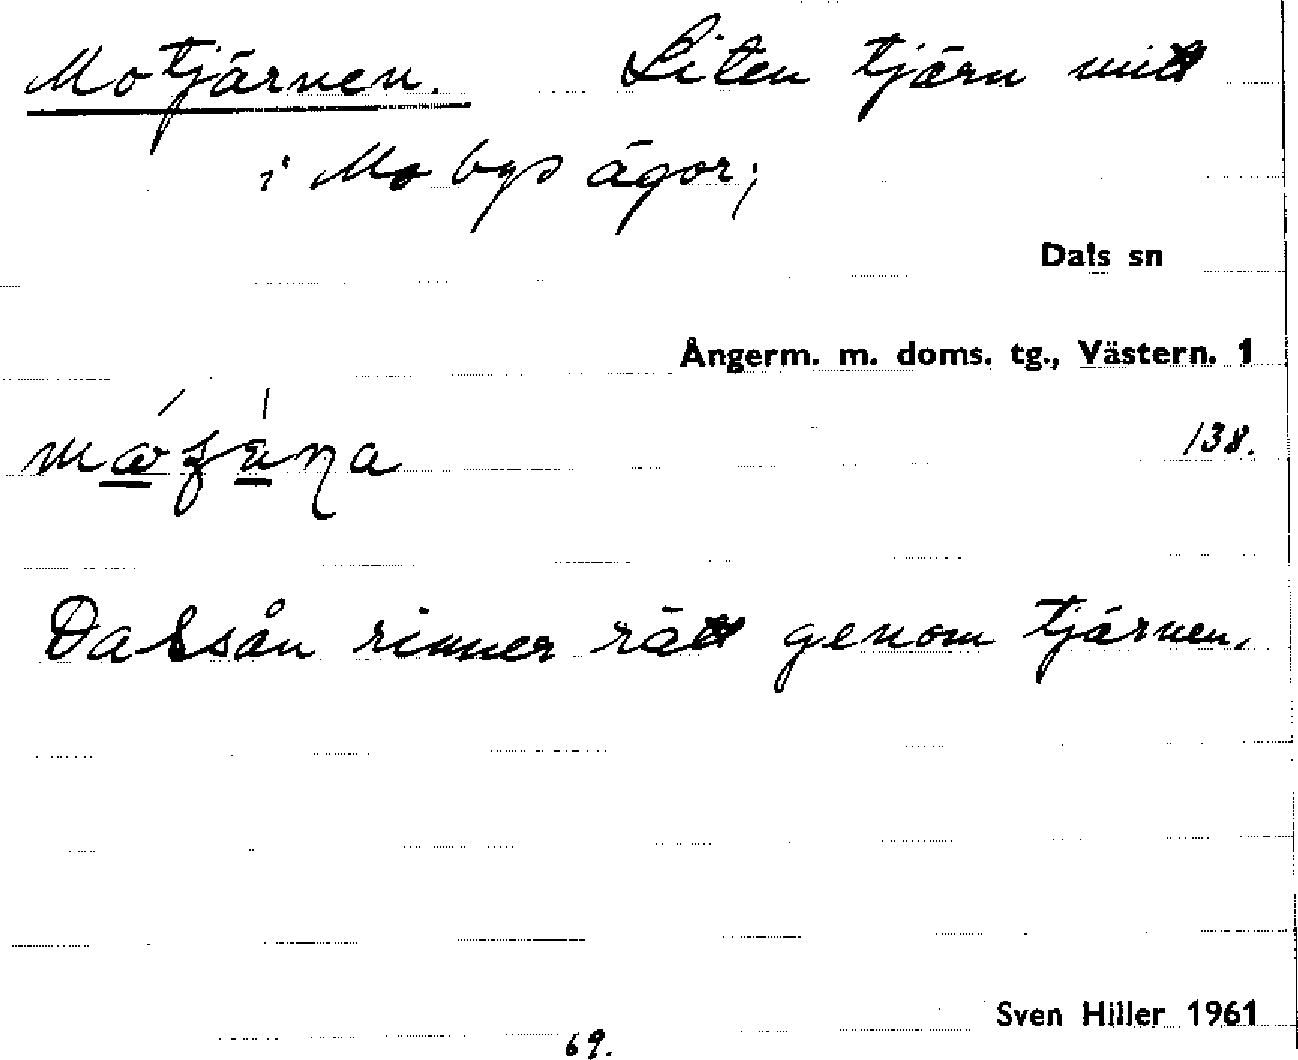 Motjärnen. Liten tjärn mitt
i Mo bys ägor;
Dals sn
Ångerm. m. doms. tg., Västern. 1
138.
Dalsån rinner rätt genom tjärnen.
Sven Hiller 1961
69.